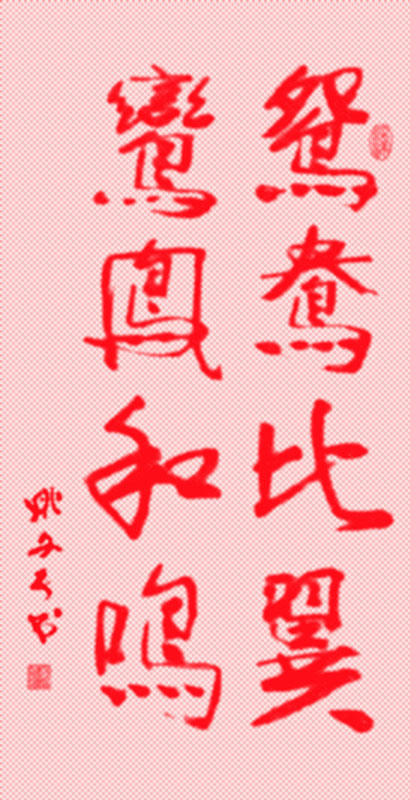 鸳鸯比翼
鸾凤和鸣